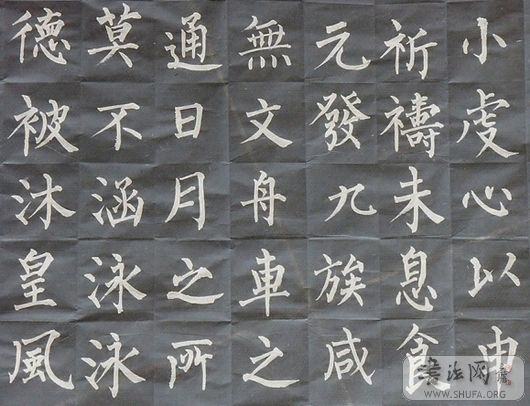 小虔心以申
祈禱未息食
元發九族咸
無文舟車之
通日月之所
莫不涵泳泳
德被沐皇風
書法网
WWW.SHUFA.ORG